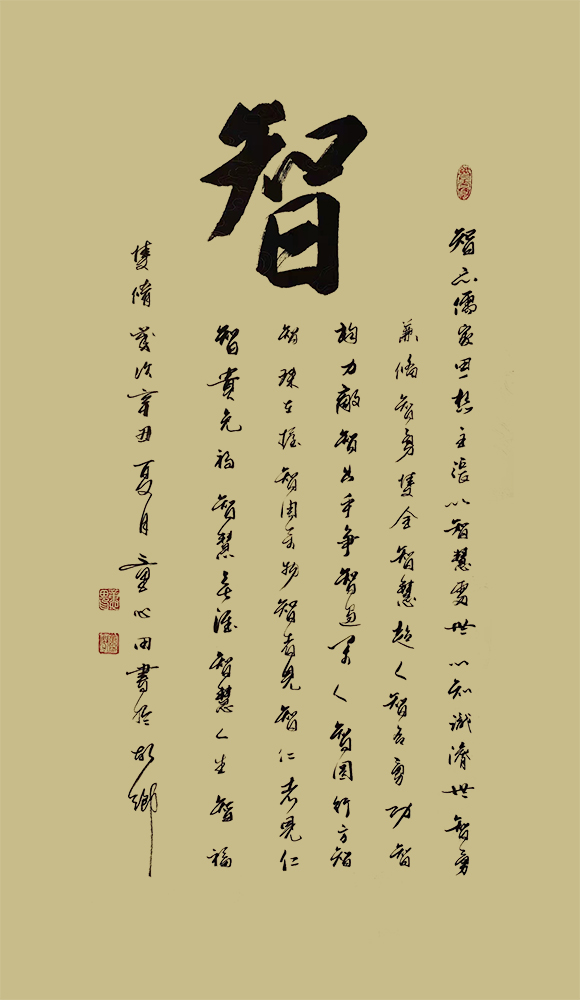 智
智亦儒家思想主張以智慧處世以知識濟世智勇
兼備智勇雙全智慧超人智名勇功智
均力敵智出乎爭智過萬人智圓行方智
智珠在握智周萬物智者見智仁者見仁
智貴免禍智慧無涯智慧人生智福
雙脩歲次辛丑夏月童心田書於故鄉